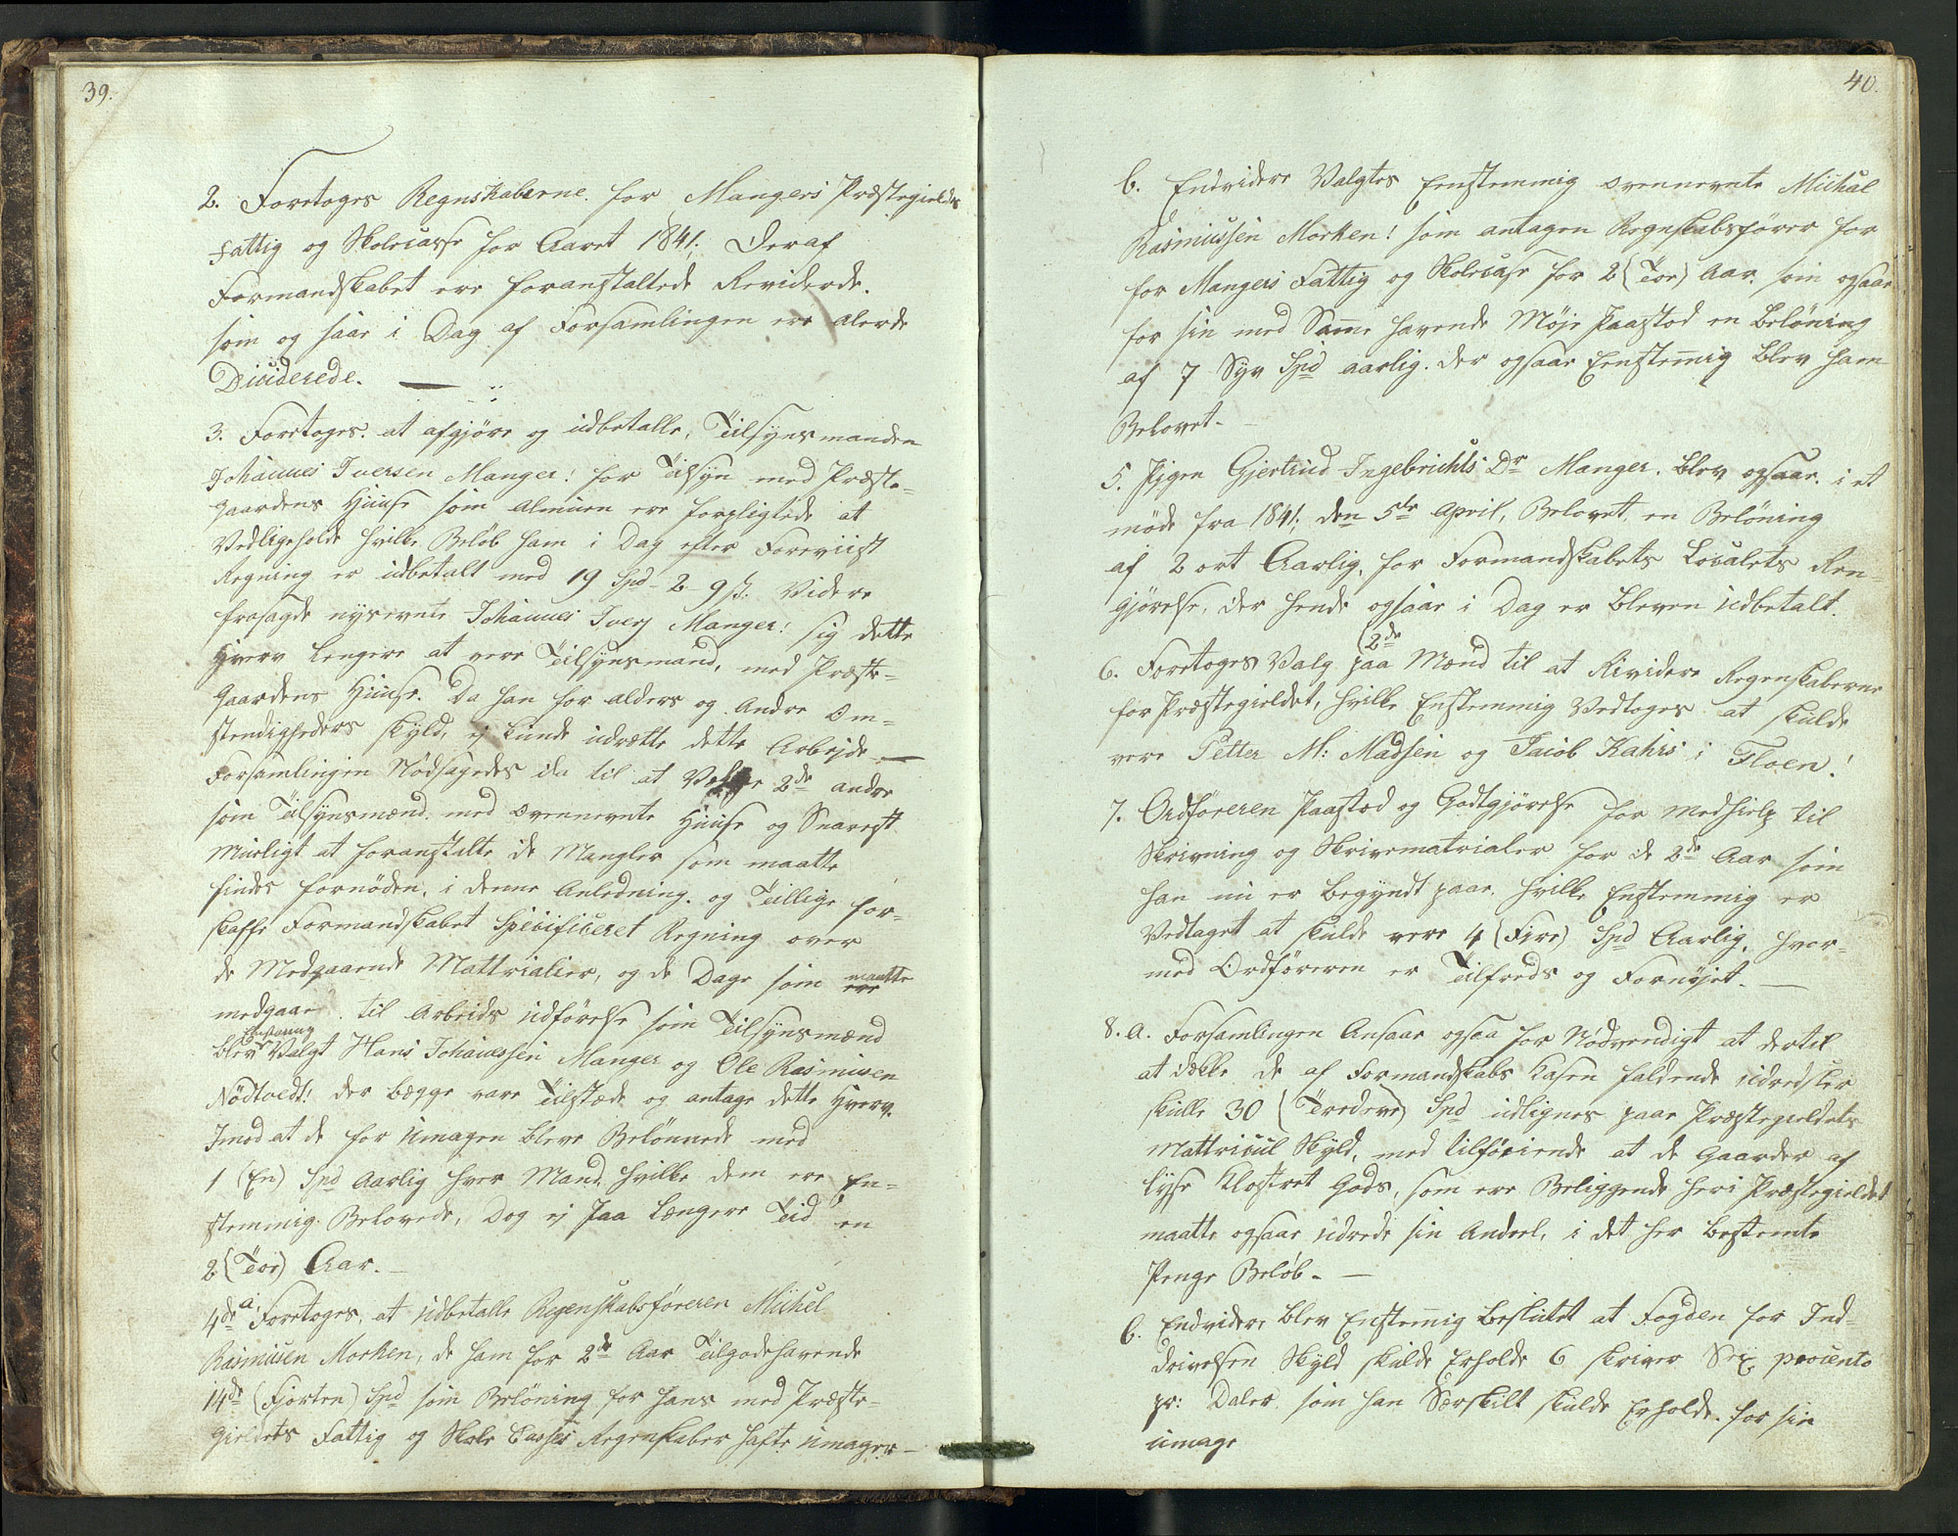 39.
2. Foretoges Regnskaberne for Mangers Præstegields
Fattig og Skolecasse for Aaret 1841, Der af
Formandskabet ere foranstaltede Reviderede.
som og saar i Dag af Forsamlingen ere alerede
Diciderede. —
3. Foretoges at afgjöre og udbetalle, Tilsynsmanden
Johannes Iversen Manger! for Tilsyn med Præste-
gaardens Huuse som Almuen ere forpligtede at
Vedligeholde hvilke Belöb ham i Dag efter Foreviist
Regning er udbetalt med 19 Spd - 2 - 9 s. Videre
frasagde nysnevnte Johannes Ivers Manger! sig dette
Hverv lengere at vere Tilsynsmand, med Præste-
Gaardens Huuse. Da han for alders og Andre Om-
stendigheders Skyld, ej kunde udrette dette Arbejde —
Forsamlingen Nödsagedes da til at Velge 2de andre
som Tilsynsmænd med ovennevnte Huuse og Snarest
Mueligt at foranstalte de Mangler som maatte
findes fornöden, i denne Anledning. og Tillige for-
skaffe Formandskabet Specificeret Regning over
de Medgaaende Mattrialier, og de Dage som maatte
ere
medgaar til Arbeids Udförelse som Tilsynsmænd
Enstemig
blev Valgt Hans Johanessen Manger og Ole Rasmusen
Nödtvedt! der begge vare Tilstede og antage dette Hverv.
Imod at de for Umagen bleve Belönnede med
1 (En) Spd Aarlig hver Mand, hvilke dem ere En-
stemmig Belovede, Dog ej paa Længere Tid en
2 (Toe) Aar. —
4de a. Foretoges, at Udbetalle Regenskabsföreren Michel
Rasmusen Morken, de ham for 2de Aar Tilgodehavende
14de (Fjorten) Spd som Belöning for hans med Præste-
gieldets Fattig og Skole Casses Regenskaber hafte umager —
40.
b. Endvidere Valgtes Eenstemmig ovennevnte Michal
Rasmussen Morken! som antagen Regnskabsförer for
for Mangers Fattig og Skolecase for 2 (Toe) Aar. som ogsaar
for sin med Same havende Möje Paastod en Belöning
af 7 Syv Spd aarlig. der ogsaar Eenstemig blev ham
Belovet. —
5. Pigen Gjertrud Ingebrichts Dr Manger. blev ogsaar i et
möde fra 1841, den 5te April, Belovet en Belöning
af 2 ort Aarlig, for Formandskabets Localets Ren-
gjörelse, der hende ogsaar i Dag er bleven Udbetalt.
2de
6. Foretoges Valg paa Mænd til at Rividere Regenskaberne
for Præstegieldet, hvilke Enstemmig Vedtoges at skulde
vere Petter M: Madsen og Jacob Kahrs i Floen!
7. Ordföreren Paastod og Godtgjörelse for Medhielp til
Skrivning og Skrivematrialer for de 2de Aar som
han nu er begyndt paar. hvilke Enstemmig er
Vedtaget at skulde vere 4 (Fire) Spd Aarlig. hvor-
med Ordföreren er Tilfreds og Fornöjet. —
8. a. Forsamlingen Ansaar ogsaa for Nödvendigt at dertil
at dekke de af Formandskabs Kasen faldende Udredsler
skulle 30 (Tredeve) Spd udlignes paar Præstegieldets
Mattricul Skyld, med tilföiende at de Gaarder af
Lyse Klostret Gods, som ere Beliggende heri Præstegieldet
maatte ogsaar udrede sin Andeel, i det her bestemte
Penge Belöb. —
b. Endvidere blev Enstemig besluttet at Fogden for Ind-
drivelsen Skyld skulde Erholde 6 skriver Sex procento
pr: Daler som han Særskilt skulde Erholde for sin
umage